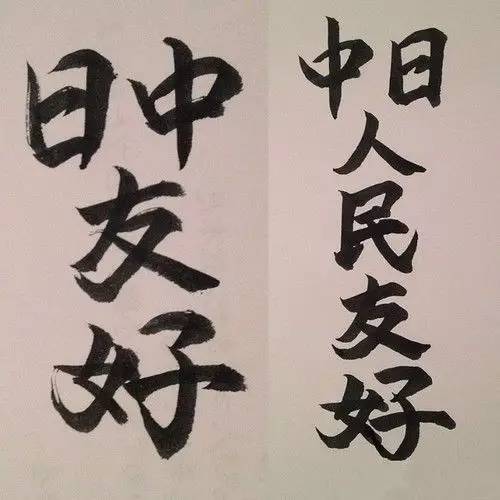 日中
友
好
中日
人
民
友
好